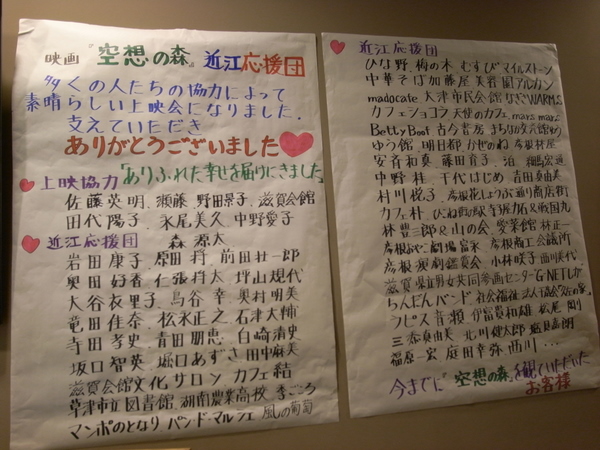 映画『空想の森』近江応援団
多くの人たちの協力によって
素晴らしい上映会になりました.
支えていただき
ありがとうございました
「ありふれた幸せを届けにきました」
上映協力
佐藤英明、須藤、野田景子、滋賀会館
田代陽子、永尾美久、中野愛子
近江応援団 森 源太
岩田康子、原田 将、前田壮一郎
奥田好香、仁張将太、坪山規代
大谷衣里子、鳥谷 幸、奥村明美
竜田佳奈、松永正之、石津大輔
寺田孝史、青田朋恵、白崎清史
坂口智英、堀口あずさ、田中麻美
滋賀会館文化サロン カフェ結
草津市立図書館、湖南農業高校、季ごころ
マンポのとなり バンド・マルシェ 風の葡萄
近江応援団
ひな野、梅の木、むすび マイルストーン
中華そば加藤屋 芙蓉園 アルカン
madocafe 大津市民会館 なぎさWARMS
カフェショコラ 天使のカフェ mari mari
Betty Boof 古今書房
ゆう館、明日都、かぜのね、彦根材屋
安斉和真、藤田育子、泊、細馬宏通
中野 桂 千代はじめ 吉田真由美
村川悦子、彦根花しょうぶ通り商店街
カフェ朴
林豊三郎&山の会、愛菜館、林正一
彦根商工会議所
彦根演劇鑑賞会、小林咲子、西川美代
滋賀県立男女共同参画センターG-NETしが
ちんどんバンド 社会福祉法人
ラピス 音瀬 伊富貴和雄、松尾 剛
三添真由美、北川健太郎、堀具嘉朗
福原一宏、庭田幸弥、西川...
今までに『空想の森』を観ていただいた
お客様